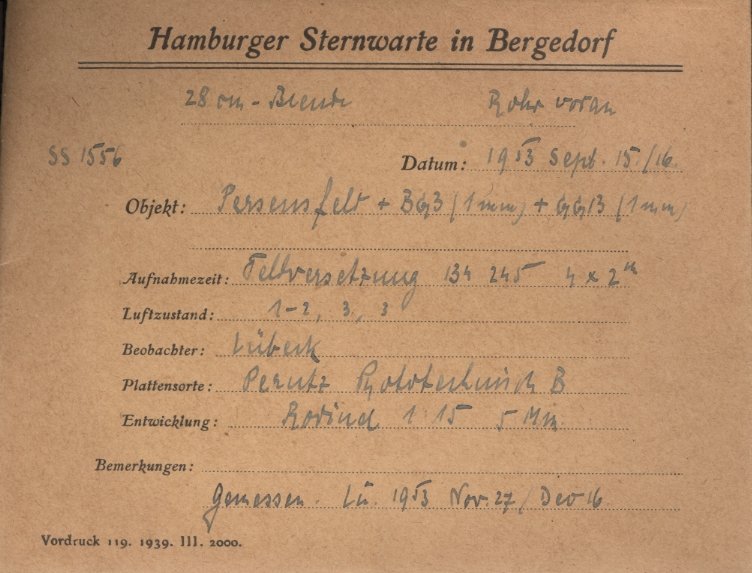 Hamburger Sternwarte in Bergedorf
28 cm - Blende Rohr voran
SS 1556
Datum: 1953 Sept. 15./16.
Objekt: Perseusfeld + BG3 (1mm) + GG13 (1mm)
Aufnahmezeit: Feldversetzung 134 245 4 x 2m
Luftzustand: 1-2, 3, 3
Beobachter: Lübeck
Plattensorte: Perutz Phototechnisch B
Entwicklung: Rodinal 1:15 5 Min.
Bemerkungen:
Gemessen. Lü. 1953 Nov. 27 / Dev 16
Vordruck 119. 1939. III. 2000.